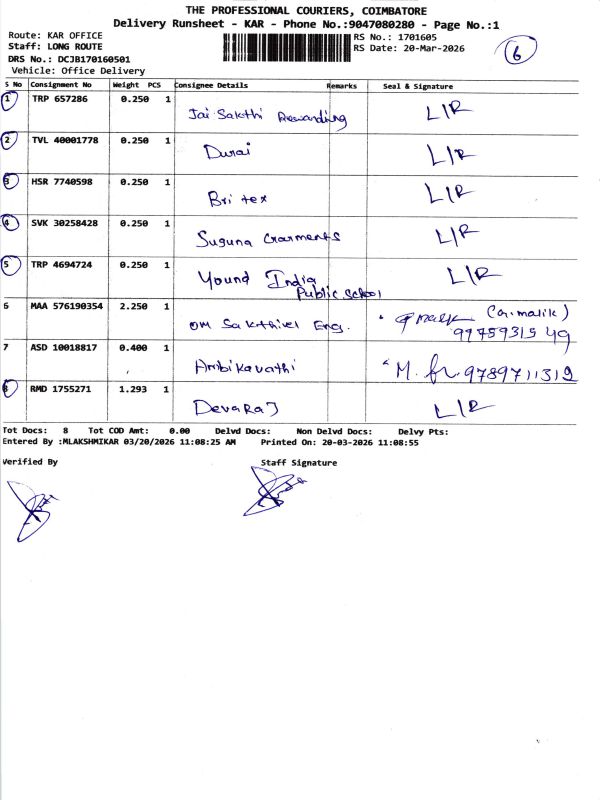 THE PROFESSIONAL COURIERS, COIMBATORE
Delivery Runsheet - KAR - Phone No.:9047080280 - Page No.:1
Route: KAR OFFICE RS No.: 1701605
Staff: LONG ROUTE RS Date: 20-Mar-2026 6
DRS No.: DCJB170160501
Vehicle: Office Delivery
S No Consignment No Weight PCS Consignee Details Remarks Seal & Signature
1 TRP 657286 0.250 1 Jai Sakthi L/R
2 TVL 40001778 0.250 1 Durai L/R
3 HSR 7740598 0.250 1 Britex L/R
4 SVK 30258428 0.250 1 Suguna Garments L/R
5 TRP 4694724 0.250 1 Yound India L/R
Public School
6 MAA 576190354 2.250 1 OM Sakthivel Eng. (a.malik)
99759315 49
7 ASD 10018817 0.400 1 Ambikavathi M. 9789711312
8 RMD 1755271 1.293 1 Devaraj L/R
Tot Docs: 8 Tot COD Amt: 0.00 Delvd Docs: Non Delvd Docs: Delvy Pts:
Entered By :MLAKSHMIKAR 03/20/2026 11:08:25 AM Printed On: 20-03-2026 11:08:55
Verified By Staff Signature